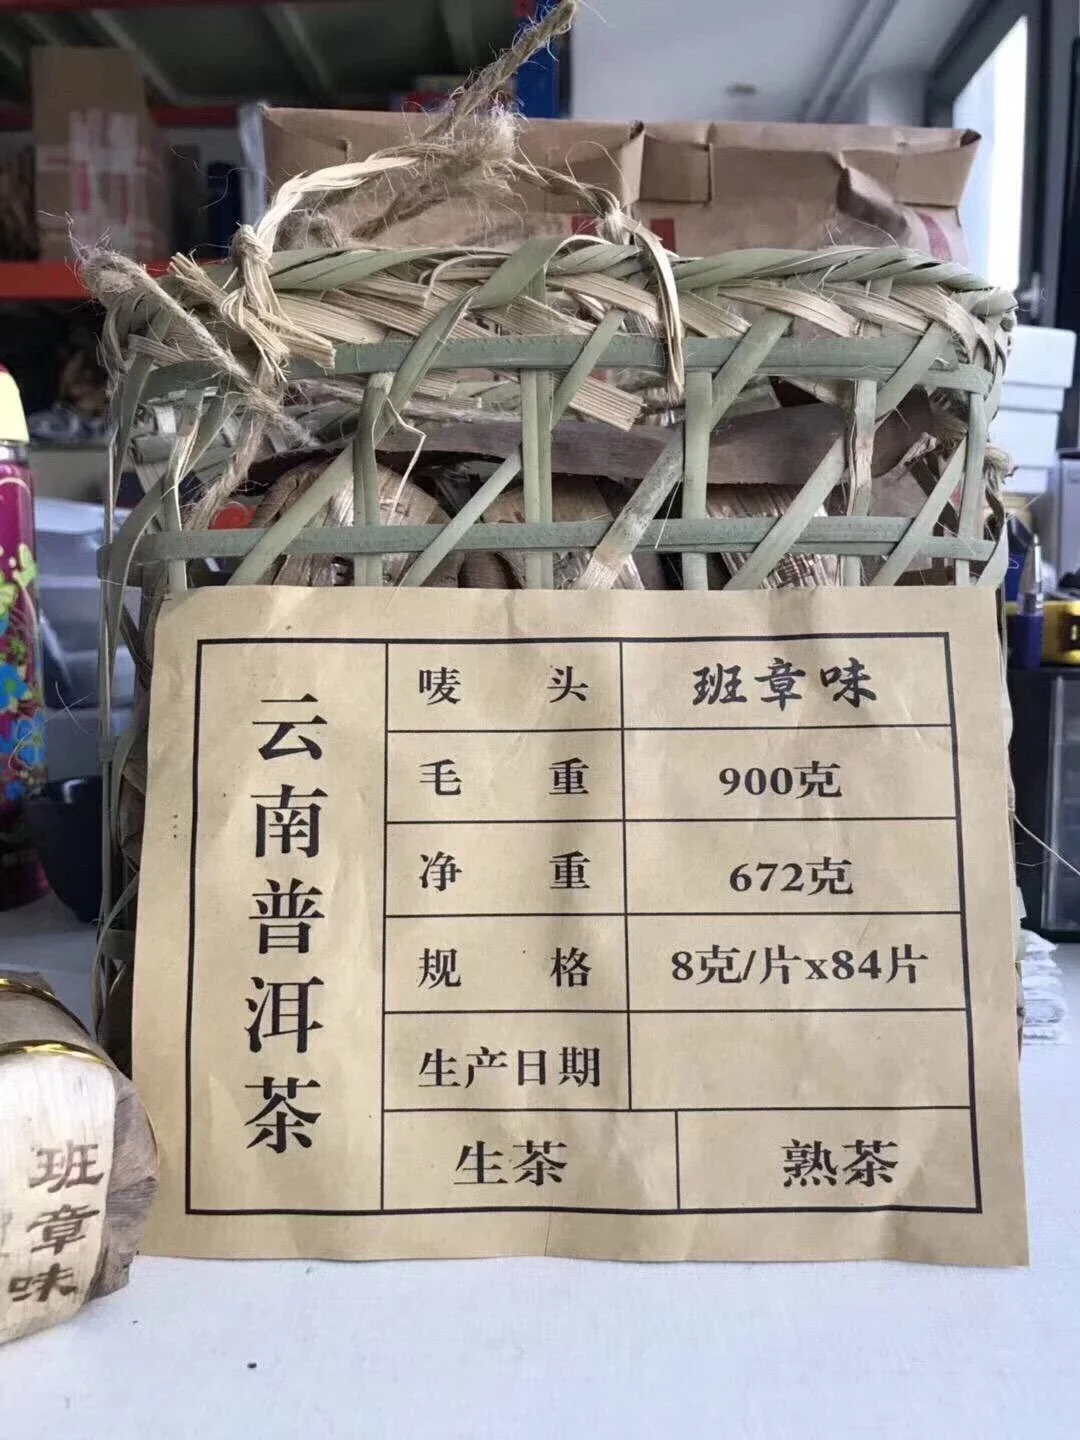 云南普洱茶
唛头 班章味
毛重 900克
净重 672克
规格 8克/片x84片
生产日期
生茶 熟茶
班章味